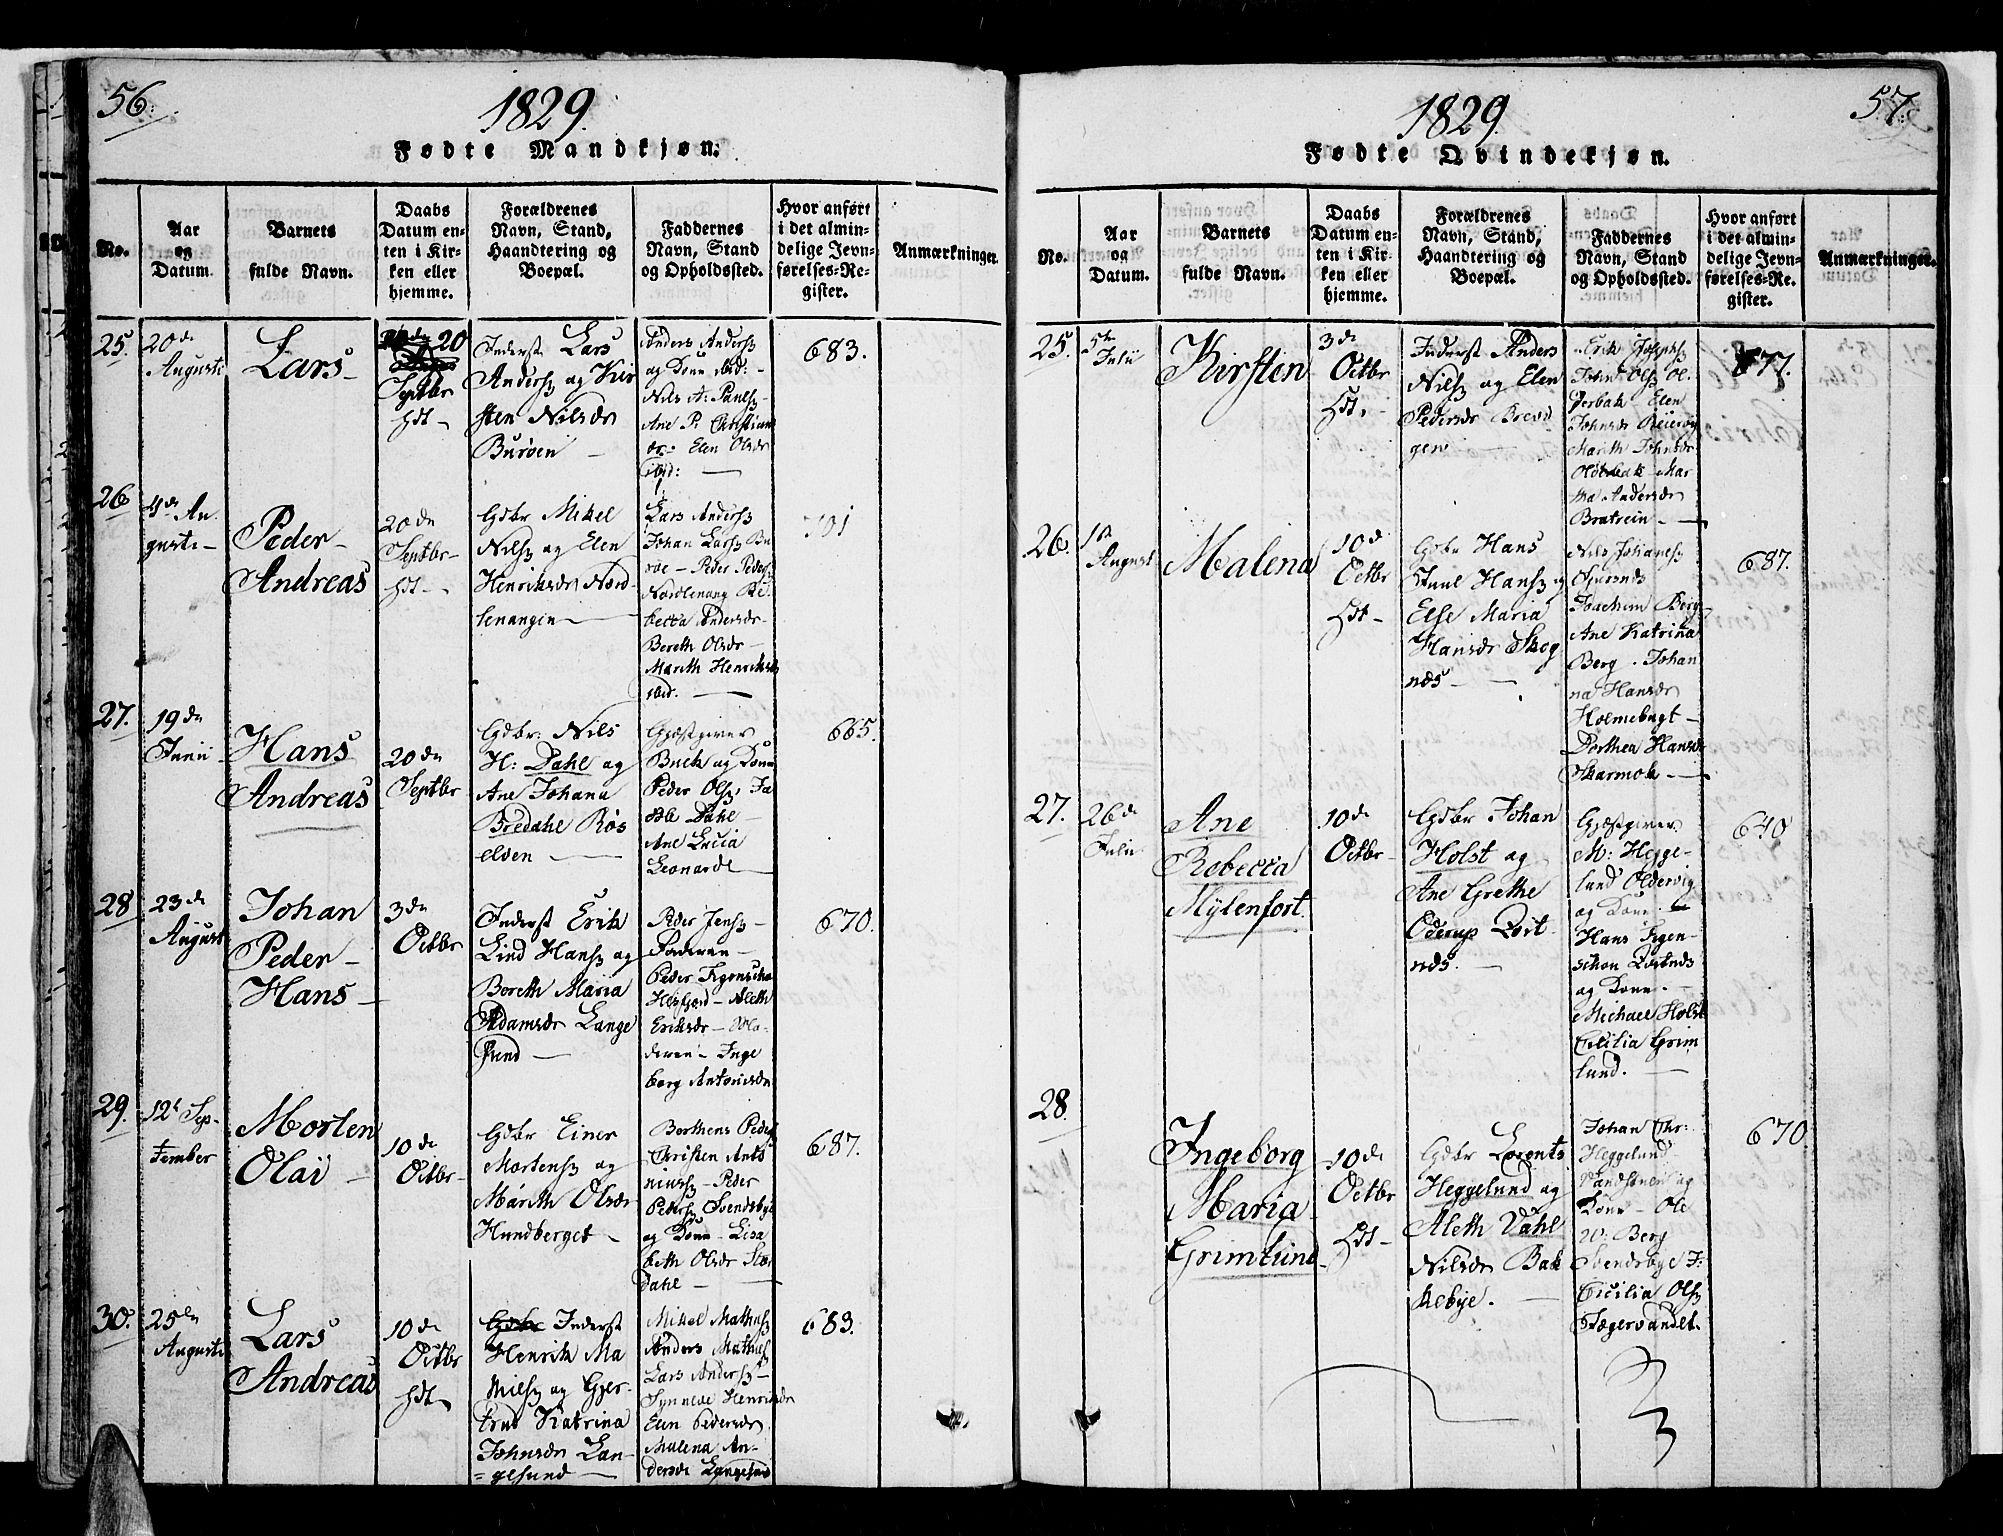 56.
1829.
Fødte Mandkjøn.
No.
Aar
og
Datum.
Barnets
fulde Navn.
Daabs
Datum en-
ten i Kir-
ken eller
hjemme.
Forældrenes
Navn, Stand,
Haandtering og
Boepæl.
Faddernes
Navn, Stand
og Opholdssted.
Hvor anført
i det almin-
delige Jevn-
førelses-Re-
gister.
Anmærkninger.
25.
20de
Augusti
Lars
20
Septbr
hdt
Inderst Lars
Andersz og Kir
sten Nilsdr
Burøen
Anders Andersz
og Kone ibid:
Nils A: Paulsz
Ane P. Christians
dr. Elen Olsdr
ibid:
683.
26
4de Au
gusti
Peder
Andreas
20de
Septbr
hdt
Gdbr Mikel
Nilsz og Elen
Henriksdr Nord
lenangen
Lars Andersz
Johan Larsz Bu
røe - Peder Pedersz
Nordlenang Re
becca Andersdr
Bereth Olsdr
Mareth Henriksdr
ibid.
701
27.
19de
Junii
Hans
Andreas
20de
Septbr
Gdbr. Nils
H: Dahl og
Ane Johana
Bredahl Røs
elven
Gjæstgiver
Buck og Kone
Peder Olsz. Ja
Dahl
Ane Lucia
Leonardr
665.
28
23de
August
Johan
Peder
Hans
3de
Octbr
Inderst Erik
Lind Hansz og
Bereth Maria
Adamsdr Lange
sund
Peder Jensz
Peder Figenschou
Aleth
Eriksdr
deren - Inge
borg Antonisdr
670.
29.
12te Sep-
tember
Morten
Olai
10de
Octbr
Gdbr Einer
Mortensz og
Marith Olsdr
Hundberget
Berthens Pedersz
Christen Antö
niusz - Peder
Pedersz Svendsbye
og Kone - Lisa
beth Olsdr Stor
dahl
687.
30.
25de
Augusti
Lars
Andreas
10de
Octbr
hdt
Gdbr Inderst
Henrik Ma
thisz og Gjer-
trud Katrina
Johnsdr Lan-
gesund
Mikel Mathisz
Anders Mathisz
Lars Andersz
Synneve Henriksdr
Elen Pedersdr
Malena An-
dersdr Langesund
683.
57.
1829
Fødte Qvindekjøn.
No.
Aar
og
Datum.
Barnets
fulde Navn.
Daabs
Datum en-
ten i Kir-
ken eller
hjemme.
Forældrenes
Navn, Stand,
Haandtering og
Boepæl.
Faddernes
Navn, Stand
og Opholdssted.
Hvor anført
i det almin-
delige Jevn-
førelses-Re-
gister.
Anmærkninger.
25.
5te
Julii
Kirsten
3de
Octbr
hdt.
Inderst Anders
Nilsz og Elen
Pedersdr Breid
gen
Erik Josephsz
John Olsz Ol-
derbak Elen
Johnsdr Reiervig
Marith Johnsdr
Olderbak Mar
tha Andersdr
Bratrein
677.
26.
1te
August
Malena
10de
Octbr
hdt
Gdbr Hans
Juul Hansz og
Else Maria
Hansdr Skog
næs
Nils Johansz
Joachim Berg
Ane Katrina
Berg. Johan
na Hansdr
Holmebugt
Dorthea Hansdr
Skarmok
687.
27.
26de
Julii
Ane
Rebecca
Mylenfort.
10de
Octbr
Gdbr Johan
Holst og
Ane Grethe
Oderup Qvit
næs.
Gjæstgiver
M: Hegge-
lund Oldervig
og Kone.
Hans Figen-
schou Qvitnæs
og Kone.
Michael Holst
Cecilia Grim
lund.
640
28
Ingeborg
Maria
Grimlund
10de
Octbr
hdt
Gdbr Lorents
Heggelund og
Aleth Dahl
Nilsdr Bak
kebye.
Johan Chr:
Heggelund
og
Kone - Ole
W: Berg
Svendsbye J:
Cicilia Olsz
Jægervandet.
670.